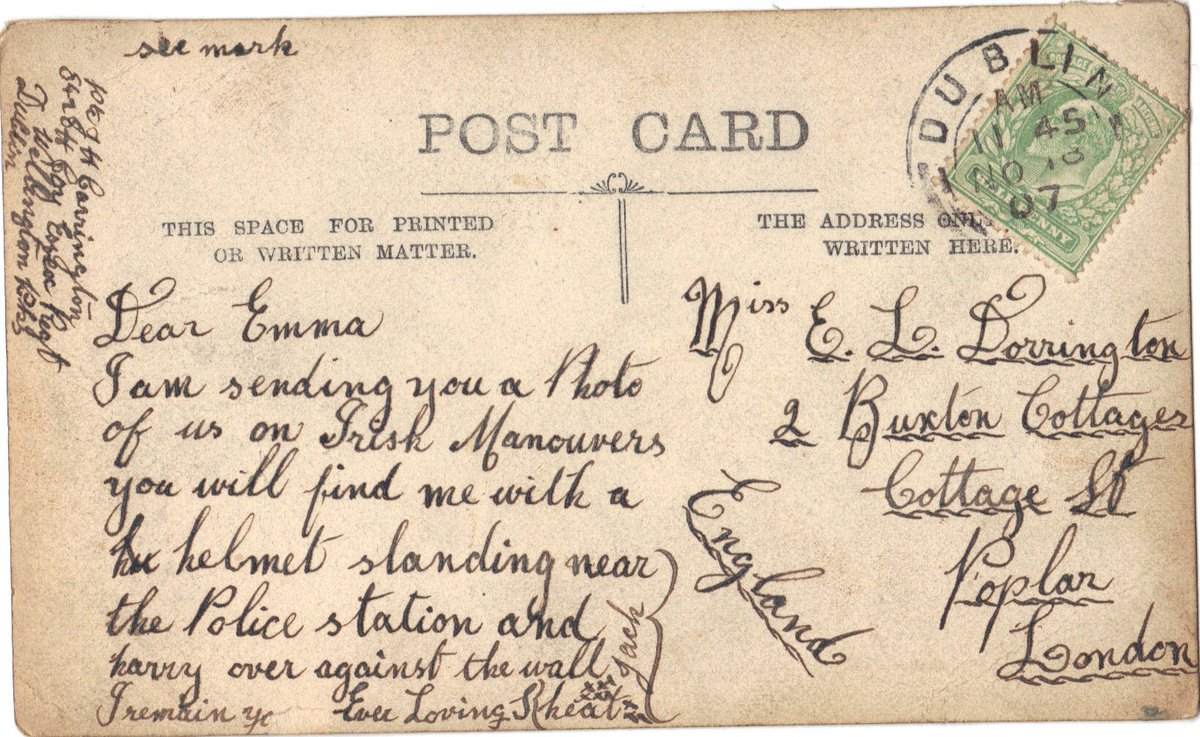 see mark
Dorrington
Coy Essex Regt
Wellington Bks
Dublin
POST CARD
DUBLIN
AM
11 45
NO 18
07
THIS SPACE FOR PRINTED
OR WRITTEN MATTER.
THE ADDRESS ONLY
WRITTEN HERE.
PENNY
Dear Emma
I am sending you a Photo
of us on Irish Manouvers
you will find me with a
helmet standing near
the Police station and
harry over against the wall
I remain yr Ever Loving
Jack
Miss E. L. Dorrington
2 Buxton Cottages
Cottage St
Poplar
London
England